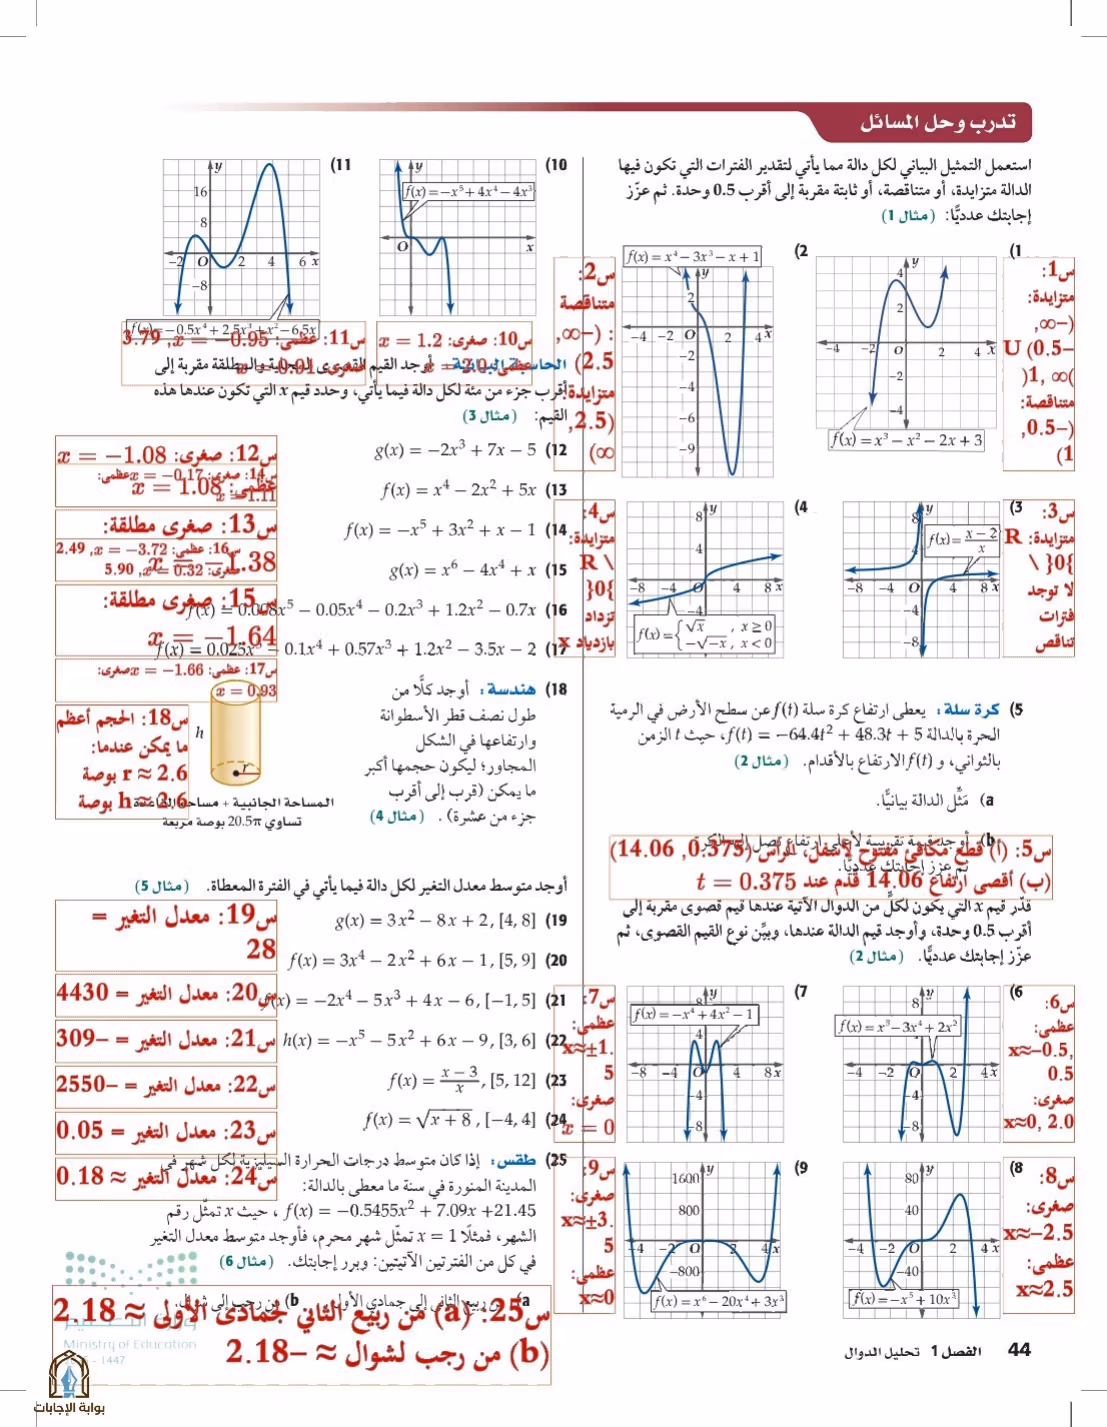 تدرب وحل المسائل
استعمل التمثيل البياني لكل دالة مما يأتي لتقدير الفترات التي تكون فيها
الدالة متزايدة، أو متناقصة، أو ثابتة مقربة إلى أقرب 0.5 وحدة. ثم عزّز
إجابتك عدديًّا: (مثال 1)
(1
f(x) = x³ − x² − 2x + 3
س1:
متزايدة:
(−∞,
−0.5) U
(1, ∞)
متناقصة:
(−0.5,
1)
(2
f(x) = x⁴ − 3x³ − x + 1
س2:
متناقصة
: (−∞,
2.5)
متزايدة:
(2.5,
∞)
(3
f(x) = x − 2 / x
س3:
متزايدة: R
\ {0}
لا توجد
فترات
تناقص
(4
f(x) = { √x , x ≥ 0
−√−x , x < 0
س4:
متزايدة:
R \
{0}
تزداد
بازدياد x
(5 كرة سلة: يعطى ارتفاع كرة سلة f(t) عن سطح الأرض في الرمية
الحرة بالدالة f(t) = −64.4t² + 48.3t + 5، حيث t الزمن
بالثواني، و f(t) الارتفاع بالأقدام. (مثال 2)
(a مثّل الدالة بيانيًّا.
(b أوجد قيمة تقريبية لأعلى ارتفاع تصل إليه الكرة
ثم عزز إجابتك عدديًّا.
س5: (أ) قطع مكافئ مفتوح لأسفل، الرأس (0.375, 14.06)
(ب) أقصى ارتفاع 14.06 قدم عند t = 0.375
قدّر قيم x التي يكون لكلٍّ من الدوال الآتية عندها قيم قصوى مقربة إلى
أقرب 0.5 وحدة، وأوجد قيم الدالة عندها، وبيّن نوع القيم القصوى، ثم
عزّز إجابتك عدديًّا. (مثال 2)
(6
f(x) = x⁵ − 3x⁴ + 2x²
س6:
عظمى:
x≈−0.5,
0.5
صغرى:
x≈0, 2.0
(7
f(x) = −x⁴ + 4x² − 1
س7:
عظمى:
x≈±1.
5
صغرى:
x = 0
(8
f(x) = −x⁵ + 10x³
س8:
صغرى:
x≈−2.5
عظمى:
x≈2.5
(9
f(x) = x⁶ − 20x⁴ + 3x³
س9:
صغرى:
x≈±3.
5
عظمى:
x≈0
(10
f(x) = −x⁵ + 4x⁴ − 4x³
س10: صغرى: x = 1.2
عظمى: x = 2.0
(11
f(x) = −0.5x⁴ + 2.5x³ + x² − 6.5x
س11: عظمى: x = −0.95, 3.79
صغرى: x = 0.91
الحاسبة البيانية: أوجد القيم القصوى المحلية والمطلقة مقربة إلى
أقرب جزء من مئة لكل دالة فيما يأتي، وحدد قيم x التي تكون عندها هذه
القيم: (مثال 3)
(12 g(x) = −2x³ + 7x − 5
(13 f(x) = x⁴ − 2x² + 5x
(14 f(x) = −x⁵ + 3x² + x − 1
(15 g(x) = x⁶ − 4x⁴ + x
(16 f(x) = 0.008x⁵ − 0.05x⁴ − 0.2x³ + 1.2x² − 0.7x
(17 f(x) = 0.025x⁵ − 0.1x⁴ + 0.57x³ + 1.2x² − 3.5x − 2
س12: صغرى: x = −1.08
عظمى: x = 1.08
س14: صغرى: x = −0.17 عظمى:
x = 1.11
س13: صغرى مطلقة:
x = −1.38
س16: عظمى: x = −3.72, 2.49
صغرى: x = 0.32, 5.90
س15: صغرى مطلقة:
x = −1.64
س17: عظمى: x = −1.66 صغرى:
x = 0.93
(18 هندسة: أوجد كلًّا من
طول نصف قطر الأسطوانة
وارتفاعها في الشكل
المجاور؛ ليكون حجمها أكبر
ما يمكن (قرب إلى أقرب
جزء من عشرة). (مثال 4)
h
r
المساحة الجانبية + مساحة القاعدة
تساوي 20.5π بوصة مربعة
س18: الحجم أعظم
ما يمكن عندما:
r ≈ 2.6 بوصة
h ≈ 2.6 بوصة
أوجد متوسط معدل التغير لكل دالة فيما يأتي في الفترة المعطاة. (مثال 5)
(19 g(x) = 3x² − 8x + 2, [4, 8]
(20 f(x) = 3x⁴ − 2x² + 6x − 1, [5, 9]
(21 f(x) = −2x⁴ − 5x³ + 4x − 6, [−1, 5]
(22 h(x) = −x⁵ − 5x² + 6x − 9, [3, 6]
(23 f(x) = x − 3 / x, [5, 12]
(24 f(x) = √x + 8, [−4, 4]
س19: معدل التغير =
28
س20: معدل التغير = 4430
س21: معدل التغير = −309
س22: معدل التغير = −2550
س23: معدل التغير = 0.05
س24: معدل التغير ≈ 0.18
(25 طقس: إذا كان متوسط درجات الحرارة السيليزية لكل شهر في
المدينة المنورة في سنة ما معطى بالدالة:
f(x) = −0.5455x² + 7.09x +21.45 ، حيث x تمثّل رقم
الشهر، فمثلًا x = 1 تمثّل شهر محرم، فأوجد متوسط معدل التغير
في كل من الفترتين الآتيتين: وبرر إجابتك. (مثال 6)
(a من ربيع الثاني إلى جمادى الأولى (b من رجب إلى شوال
س25: (a) من ربيع الثاني جمادى الأولى ≈ 2.18
(b) من رجب لشوال ≈ −2.18
Ministry of Education
- 1447
بوابة الإجابات
44 الفصل 1 تحليل الدوال